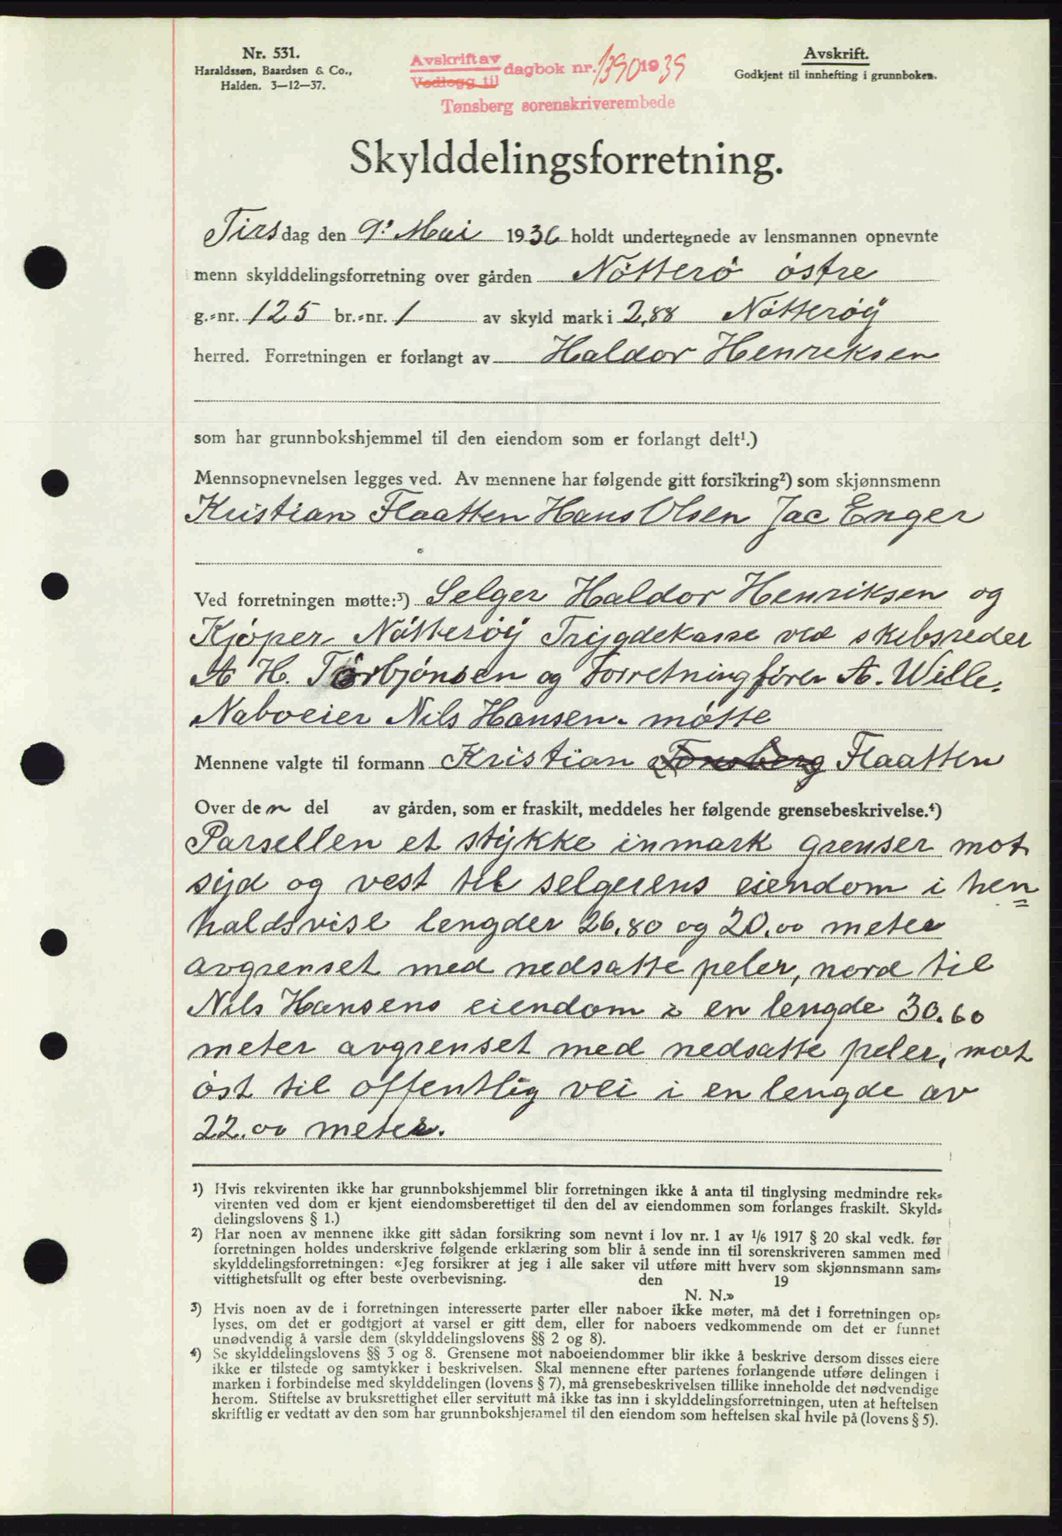 Nr. 531.
Haraldssøn, Baardsen & Co.,
Halden. 3—12—37.
Avskrift av
Vedlegg til
dagbok nr. 1390 1939
Tønsberg sorenskriverembede
Avskrift.
Godkjent til innhefting i grunnboken.
Skylddelingsforretning.
Tirsdag den 9' Mai 1936 holdt undertegnede av lensmannen opnevnte
menn skylddelingsforretning over gården Nötterö östre
g.-nr. 125 br.-nr. 1 av skyld mark i 2,88 Nötteröy
herred. Forretningen er forlangt av Haldor Henriksen
som har grunnbokshjemmel til den eiendom som er forlangt delt¹.)
Mennsopnevnelsen legges ved. Av mennene har følgende gitt forsikring²) som skjønnsmenn
Kristian Flaatten Hans Olsen Jac Enger
Ved forretningen møtte:³) Selger Haldor Henriksen og
Kjöper Nötteröy Trygdekasse ved skibsreder
A H. Törbjönsen og Forretningförer A. Wille.
Naboeier Nils Hansen. mötte
Mennene valgte til formann Kristian Tönsberg Flaatten
Over den del av gården, som er fraskilt, meddeles her følgende grensebeskrivelse.⁴)
Parsellen et stykke inmark grenser mot
syd og vest til selgerens eiendom i hen
holdsvise lengder 26.80 og 20.00 meter
avgrenset med nedsatte peler, nord til
Nils Hansens eiendom i en lengde 30.60
meter avgrenset med nedsatte peler, mot
öst til offentlig vei i en lengde av
22.00 meter.
¹) Hvis rekvirenten ikke har grunnbokshjemmel blir forretningen ikke å anta til tinglysing medmindre rek-
virenten ved dom er kjent eiendomsberettiget til den del av eiendommen som forlanges fraskilt. Skyld-
delingslovens § 1.)
²) Har noen av mennene ikke gitt sådan forsikring som nevnt i lov nr. 1 av 1/6 1917 § 20 skal vedk. før
forretningen holdes underskrive følgende erklæring som blir å sende inn til sorenskriveren sammen med
skylddelingsforretningen: «Jeg forsikrer at jeg i alle saker vil utføre mitt hverv som skjønnsmann sam-
vittighetsfullt og efter beste overbevisning. den 19
N. N.»
³) Hvis noen av de i forretningen interesserte parter eller naboer ikke møter, må det i forretningen op-
lyses, om det er godtgjort at varsel er gitt dem, eller for naboers vedkommende om det er funnet
unødvendig å varsle dem (skylddelingslovens §§ 2 og 8).
⁴) Se skylddelingslovens §§ 3 og 8. Grensene mot naboeiendommer blir ikke å beskrive dersom disses eiere
ikke er tilstede og samtykker i beskrivelsen. Skal mennene efter partenes forlangende utføre delingen i
marken i forbindelse med skylddelingen (lovens § 7), må grensebeskrivelsen tillike inneholde det nødvendige
herom. Stiftelse av bruksrettighet eller servitutt må ikke tas inn i skylddelingsforretningen, uten at heftelsen
skriftlig er vedtatt av den som har grunnbokshjemmel til den eiendom som heftelsen skal hvile på (lovens § 5).